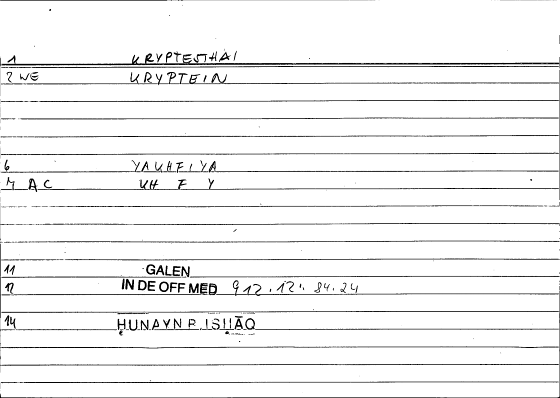 1 KRYPTESTHAI
2 WE KRYPTEIN
6 YAKHFIYA
7 AC KH F Y
11 GALEN
12 IN DE OFF MED 912.12. 84.24
14 ḤUNAYN B. ISḤĀQ